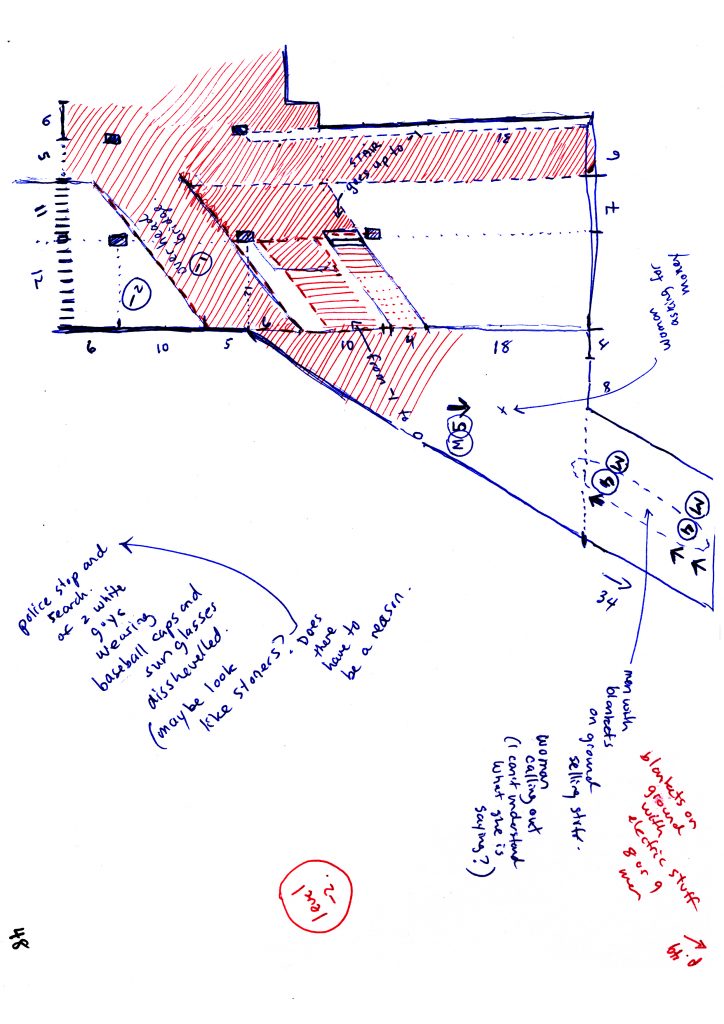 6
5
11
12
6
10
5
12
6
10
4
18
4
8
7
6
18
STAIR
goes up to -1
overhead
bridge.
-1
-2
way
to -1
0
M 5
x
woman
asking for
money
M 4
M 4
34
men with
blankets
on ground
selling stuff.
woman
calling out
(I can't understand
what she is
saying?)
blankets on
ground
with
electric stuff
8 or 9
men
p.49
police stop and
search.
of 2 white
guys
wearing
baseball caps and
sunglasses
disshevelled.
(maybe look
like stoners?)
Does
there
have to
be a reason.
level
-2.
48